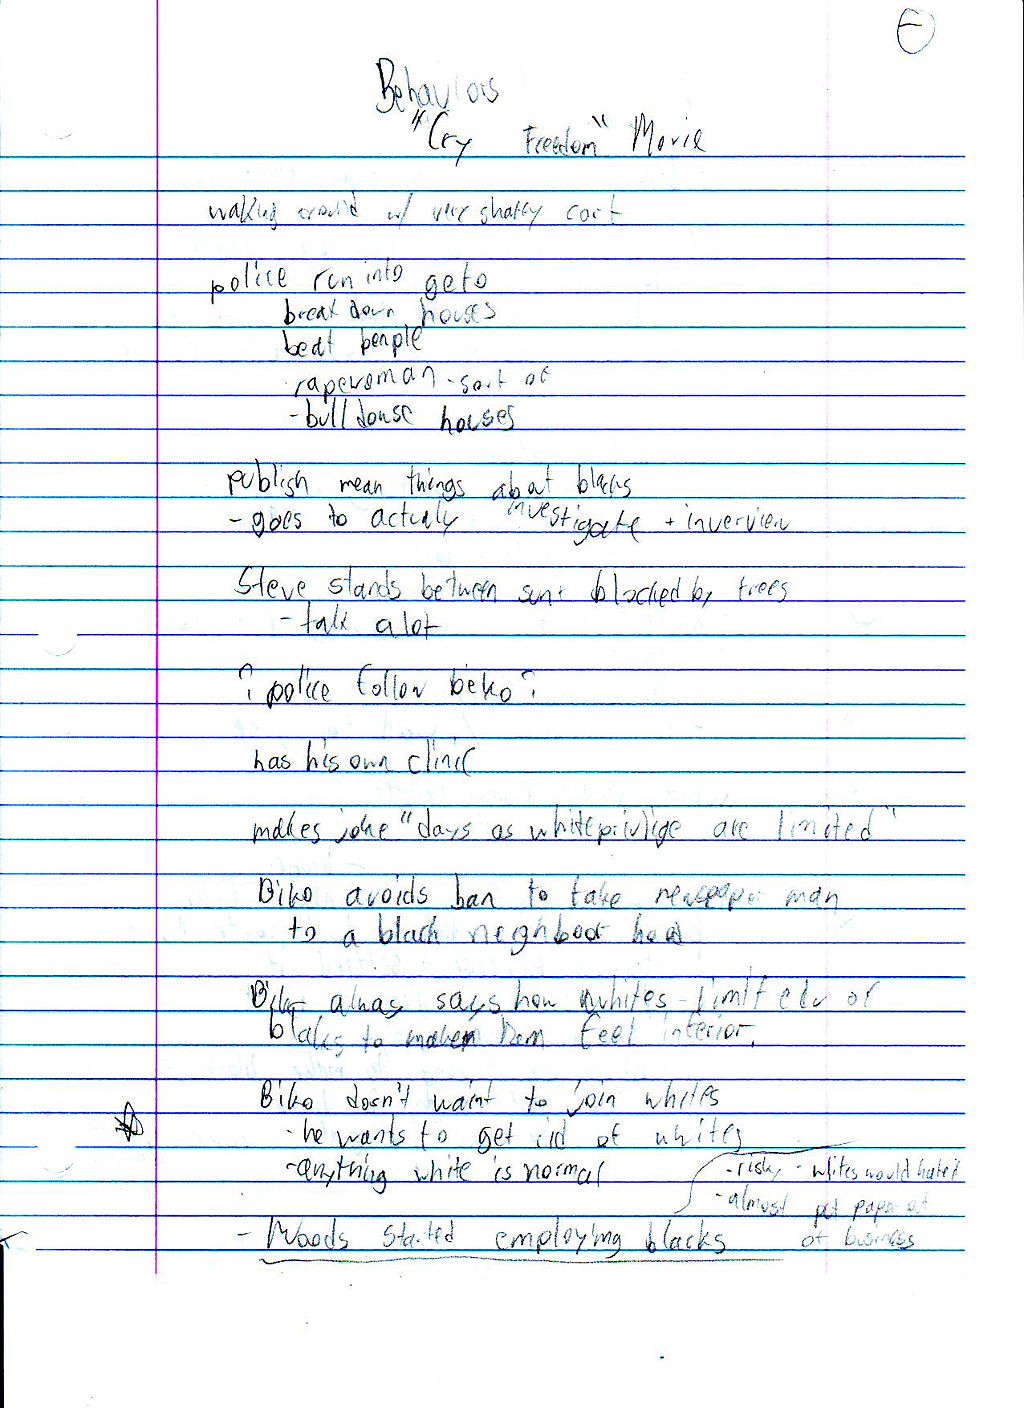 Behaviors
"Cry Freedom" Movie
walking around w/ very shabby coat
police run into geto
break down houses
beat people
rape woman - sort of
- bulldouse houses
publish mean things about blacks
- goes to actualy investigate + inverview
Steve stands between sun + blocked by trees
- talk a lot
? police follow beko ?
has his own clinic
makes joke "days as white privlige are limited"
Biko avoids ban to take newspaper man
to a black neighboor hood
Biko alway says how whites - limit edu of
blaks to make them feel inferior.
Biko doesn't waint to join whites
- he wants to get rid of whites
- anything white is normal
- risky - whites would hate it
- almost put paper out
of business
- Woods started employing blacks